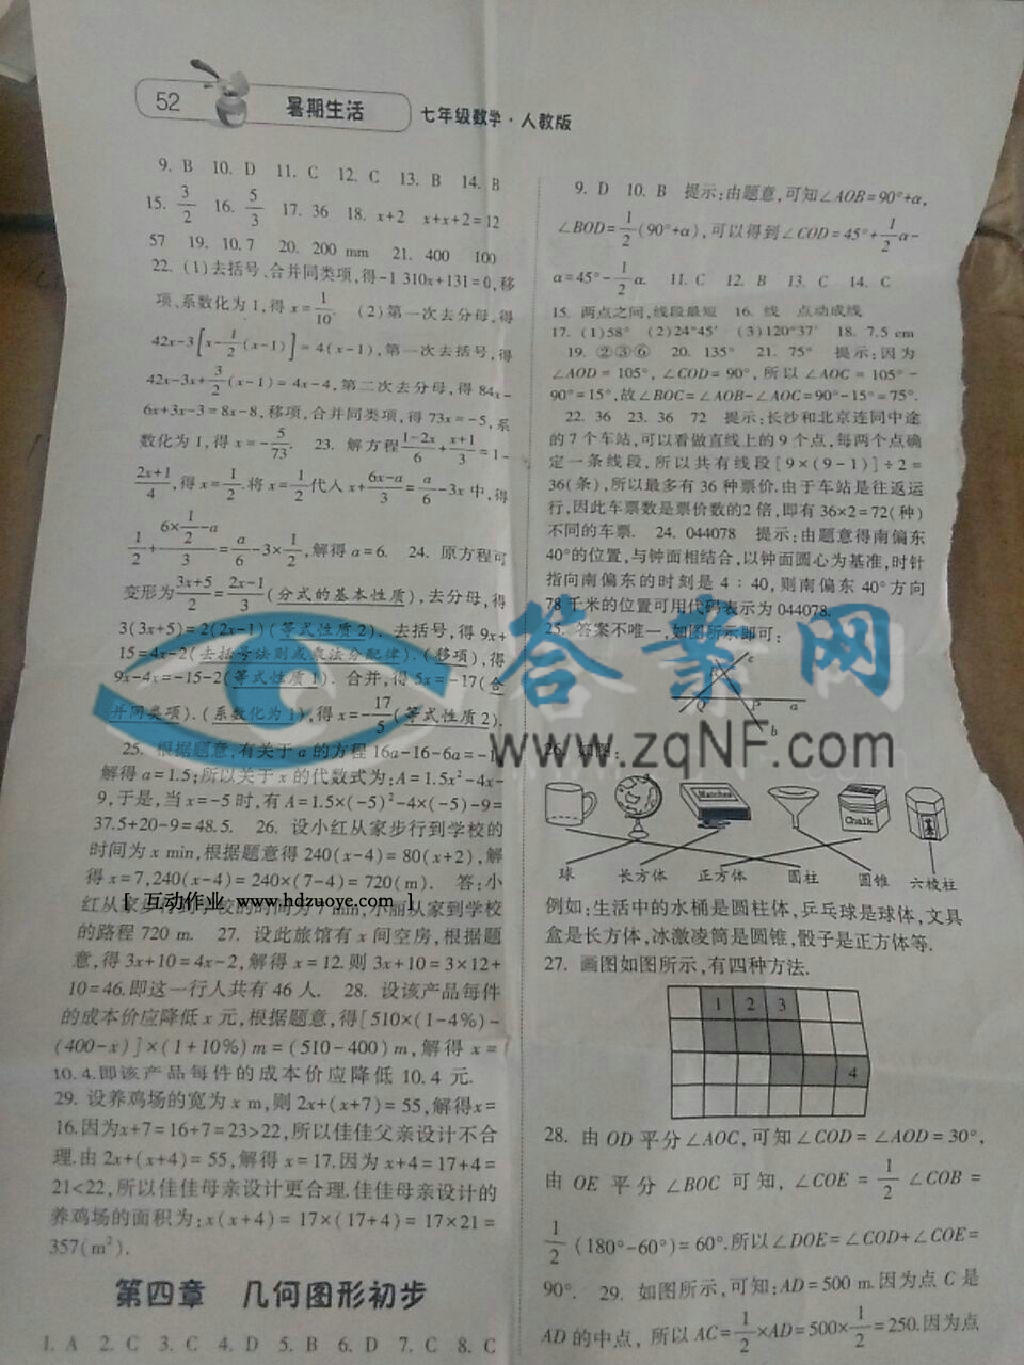 52
暑期生活
七年级数学·人教版
9. B 10. D 11. C 12. C 13. B 14. B
15. 3/2 16. 5/3 17. 36 18. x+2 x+x+2=12
57 19. 10.7 20. 200 mm 21. 400 100
22. (1)去括号、合并同类项,得-1 310x+131=0,移
项、系数化为1,得x=1/10. (2)第一次去分母,得
42x-3[x-1/2(x-1)]=4(x-1),第一次去括号,得
42x-3x+3/2(x-1)=4x-4,第二次去分母,得84x-
6x+3x-3=8x-8,移项,合并同类项,得73x=-5,系
数化为1,得x=-5/73. 23. 解方程(1-2x)/6+(x+1)/3=1-
(2x+1)/4,得x=1/2.将x=1/2代入x+(6x-a)/3=a/6-3x中,得
1/2+(6×1/2-a)/3=a/6-3×1/2,解得a=6. 24. 原方程可
变形为(3x+5)/2=(2x-1)/3(分式的基本性质),去分母,得
3(3x+5)=2(2x-1)(等式性质2). 去括号,得9x+
15=4x-2(去括号法则或乘法分配律).(移项),得
9x-4x=-15-2(等式性质1). 合并,得5x=-17(合
并同类项).(系数化为1),得x=-17/5(等式性质2).
25. 根据题意,有关于a的方程16a-16-6a=-1,
解得a=1.5;所以关于x的代数式为:A=1.5x²-4x-
9,于是,当x=-5时,有A=1.5×(-5)²-4×(-5)-9=
37.5+20-9=48.5. 26. 设小红从家步行到学校的
时间为x min,根据题意得240(x-4)=80(x+2),解
得x=7,240(x-4)=240×(7-4)=720(m). 答:小
红从家步行到学校的时间为7 min,小丽从家到学校
的路程720 m. 27. 设此旅馆有x间空房,根据题
意,得3x+10=4x-2,解得x=12.则3x+10=3×12+
10=46.即这一行人共有46人. 28. 设该产品每件
的成本价应降低x元,根据题意,得[510×(1-4%)-
(400-x)]×(1+10%)m=(510-400)m,解得x=
10.4.即该产品每件的成本价应降低10.4元.
29. 设养鸡场的宽为x m,则2x+(x+7)=55,解得x=
16.因为x+7=16+7=23>22,所以佳佳父亲设计不合
理.由2x+(x+4)=55,解得x=17.因为x+4=17+4=
21<22,所以佳佳母亲设计更合理.佳佳母亲设计的
养鸡场的面积为:x(x+4)=17×(17+4)=17×21=
357(m²).
第四章 几何图形初步
1. A 2. C 3. C 4. D 5. B 6. D 7. C 8. C
9. D 10. B 提示:由题意,可知∠AOB=90°+α,
∠BOD=1/2(90°+α),可以得到∠COD=45°+1/2α-
α=45°-1/2α. 11. C 12. B 13. C 14. C
15. 两点之间,线段最短 16. 线 点动成线
17. (1)58° (2)24°45′ (3)120°37′ 18. 7.5 cm
19. ②③⑥ 20. 135° 21. 75° 提示:因为
∠AOD=105°,∠COD=90°,所以∠AOC=105°-
90°=15°,故∠BOC=∠AOB-∠AOC=90°-15°=75°.
22. 36 23. 36 72 提示:长沙和北京连同中途
的7个车站,可以看做直线上的9个点,每两个点确
定一条线段,所以共有线段[9×(9-1)]÷2=
36(条),所以最多有36种票价.由于车站是往返运
行,因此车票数是票价数的2倍,即有36×2=72(种)
不同的车票. 24. 044078 提示:由题意得南偏东
40°的位置,与钟面相结合,以钟面圆心为基准,时针
指向南偏东的时刻是4:40,则南偏东40°方向
78千米的位置可用代码表示为044078.
25. 答案不唯一,如图所示即可:
c
P
a
b
26. 如图:
Matches
Chalk
球 长方体 正方体 圆柱 圆锥 六棱柱
例如:生活中的水桶是圆柱体,乒乓球是球体,文具
盒是长方体,冰激凌筒是圆锥,骰子是正方体等.
27. 画图如图所示,有四种方法.
1 2 3
4
28. 由OD平分∠AOC,可知∠COD=∠AOD=30°,
由OE平分∠BOC可知,∠COE=1/2∠COB=
1/2(180°-60°)=60°.所以∠DOE=∠COD+∠COE=
90°. 29. 如图所示,可知:AD=500 m.因为点C是
AD的中点,所以AC=1/2×AD=500×1/2=250.因为点
答案网
www.zqNF.com
[ 互动作业 www.hdzuoye.com ]